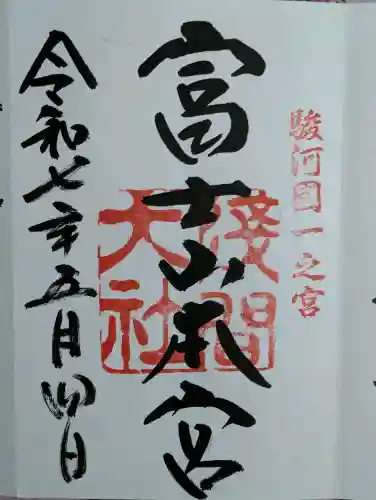 駿河國一之宮
富士山本宮
淺間
大社
令和七年五月四日